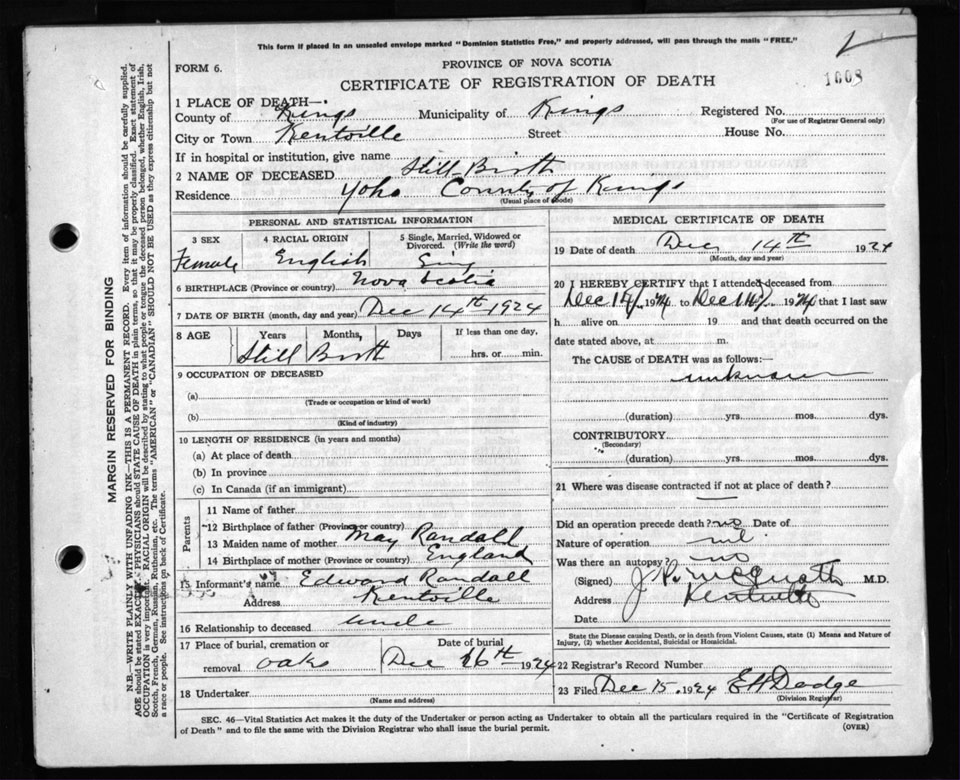 This form if placed in an unsealed envelope marked "Dominion Statistics Free," and properly addressed, will pass through the mails "FREE."
FORM 6.
PROVINCE OF NOVA SCOTIA
CERTIFICATE OF REGISTRATION OF DEATH
1008
1 PLACE OF DEATH—
County of Kings Municipality of Kings Registered No.
(For use of Registrar General only)
City or Town Kentville Street House No.
If in hospital or institution, give name
2 NAME OF DECEASED Still Birth
Residence Yoho County of Kings
(Usual place of abode)
PERSONAL AND STATISTICAL INFORMATION
3 SEX 4 RACIAL ORIGIN 5 Single, Married, Widowed or Divorced. (Write the word)
Female English Sing
6 BIRTHPLACE (Province or country) Nova Scotia
7 DATE OF BIRTH (month, day and year) Dec 14th 1924
8 AGE Years Months, Days If less than one day,
Still Birth hrs. or min.
9 OCCUPATION OF DECEASED
(a)
(Trade or occupation or kind of work)
(b)
(Kind of industry)
10 LENGTH OF RESIDENCE (in years and months)
(a) At place of death
(b) In province
(c) In Canada (if an immigrant)
Parents
11 Name of father
12 Birthplace of father (Province or country)
13 Maiden name of mother May Randall
14 Birthplace of mother (Province or country) England
15 Informant's name Edward Randall
Address Kentville
16 Relationship to deceased Uncle
17 Place of burial, cremation or removal Oaks
Date of burial
Dec 16th 1924
18 Undertaker
(Name and address)
MEDICAL CERTIFICATE OF DEATH
19 Date of death Dec 14th 1924
(Month, day and year)
20 I HEREBY CERTIFY that I attended deceased from
Dec 14/ 1924 to Dec 14/ 1924 that I last saw
h alive on 19 and that death occurred on the
date stated above, at m.
The CAUSE of DEATH was as follows:—
unknown
(duration) yrs. mos. dys.
CONTRIBUTORY
(Secondary)
(duration) yrs. mos. dys.
21 Where was disease contracted if not at place of death?
Did an operation precede death? no Date of
Nature of operation nil
Was there an autopsy? no
(Signed) M.D.
Address Kentville
Date
State the Disease causing Death, or in death from Violent Causes, state (1) Means and Nature of Injury, (2) whether Accidental, Suicidal or Homicidal.
22 Registrar's Record Number
23 Filed Dec 15 1924 E H Dodge
(Division Registrar)
SEC. 46—Vital Statistics Act makes it the duty of the Undertaker or person acting as Undertaker to obtain all the particulars required in the "Certificate of Registration
of Death" and to file the same with the Division Registrar who shall issue the burial permit.
(OVER)
MARGIN RESERVED FOR BINDING
N.B.—WRITE PLAINLY WITH UNFADING INK—THIS IS A PERMANENT RECORD. Every item of information should be carefully supplied.
AGE should be stated EXACTLY. PHYSICIANS should STATE CAUSE OF DEATH in plain terms, so that it may be properly classified. Exact statement of
OCCUPATION is very important. RACIAL ORIGIN will be described by stating to what people or tongue the deceased person belonged, whether English, Irish,
Scotch, French, German, Russian, Ruthenian, etc. The terms "AMERICAN" or "CANADIAN" SHOULD NOT BE USED as they express citizenship but not
a race or people. See instructions on back of Certificate.